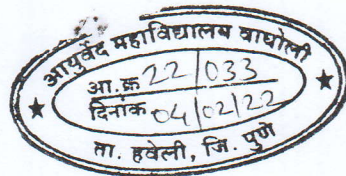 आयुर्वेद महाविद्यालय वाघोली
आ. क्र 22/033
दिनांक 04/02/22
ता. हवेली, जि. पुणे